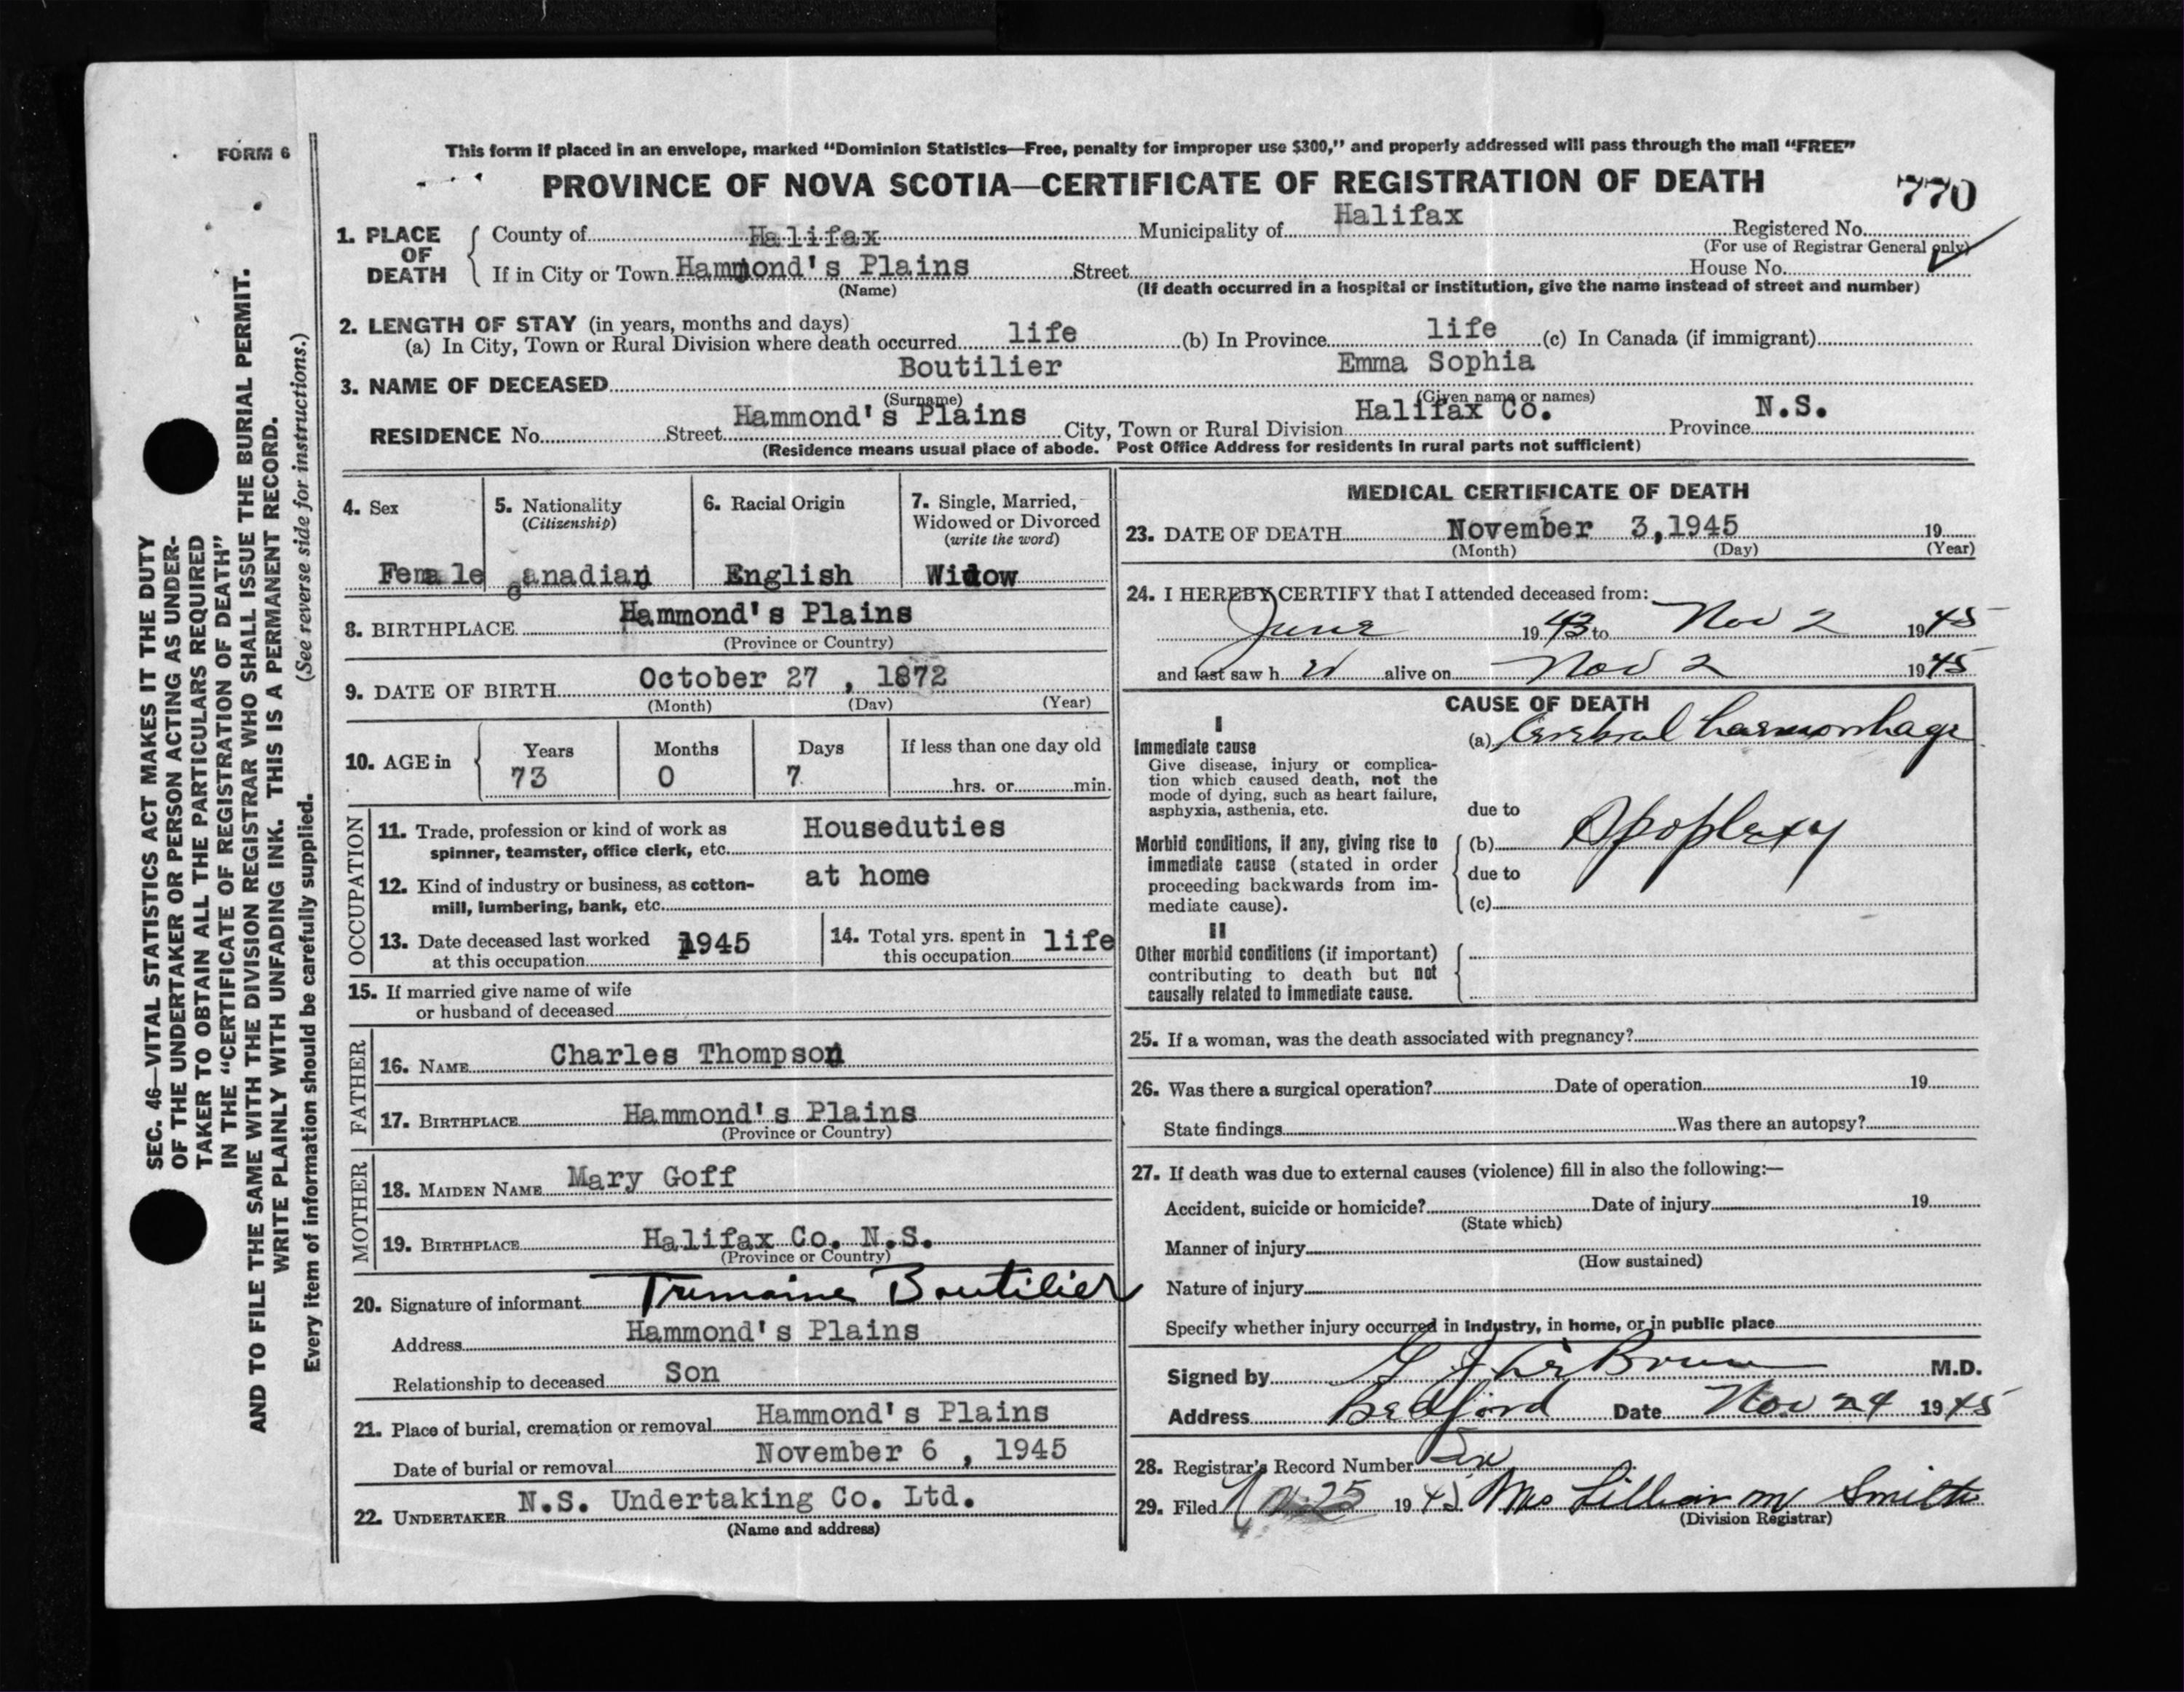 FORM 6
SEC. 46—VITAL STATISTICS ACT MAKES IT THE DUTY
OF THE UNDERTAKER OR PERSON ACTING AS UNDER-
TAKER TO OBTAIN ALL THE PARTICULARS REQUIRED
IN THE "CERTIFICATE OF REGISTRATION OF DEATH"
AND TO FILE THE SAME WITH THE DIVISION REGISTRAR WHO SHALL ISSUE THE BURIAL PERMIT.
WRITE PLAINLY WITH UNFADING INK. THIS IS A PERMANENT RECORD.
Every item of information should be carefully supplied. (See reverse side for instructions.)
This form if placed in an envelope, marked "Dominion Statistics—Free, penalty for improper use $300," and properly addressed will pass through the mail "FREE"
PROVINCE OF NOVA SCOTIA—CERTIFICATE OF REGISTRATION OF DEATH 770
1. PLACE OF DEATH County of Halifax Municipality of Halifax Registered No.
(For use of Registrar General only)
If in City or Town Hammond's Plains Street House No.
(Name) (If death occurred in a hospital or institution, give the name instead of street and number)
2. LENGTH OF STAY (in years, months and days)
(a) In City, Town or Rural Division where death occurred life (b) In Province life (c) In Canada (if immigrant)
3. NAME OF DECEASED Boutilier Emma Sophia
(Surname) (Given name or names)
RESIDENCE No. Street Hammond's Plains City, Town or Rural Division Halifax Co. Province N.S.
(Residence means usual place of abode. Post Office Address for residents in rural parts not sufficient)
4. Sex Female
5. Nationality (Citizenship) Canadian
6. Racial Origin English
7. Single, Married, Widowed or Divorced (write the word) Widow
8. BIRTHPLACE Hammond's Plains
(Province or Country)
9. DATE OF BIRTH October 27 , 1872
(Month) (Day) (Year)
10. AGE in Years Months Days If less than one day old
73 0 7 hrs. or min.
OCCUPATION
11. Trade, profession or kind of work as Houseduties
spinner, teamster, office clerk, etc.
12. Kind of industry or business, as cotton- at home
mill, lumbering, bank, etc.
13. Date deceased last worked at this occupation 1945
14. Total yrs. spent in this occupation life
15. If married give name of wife
or husband of deceased
FATHER
16. NAME Charles Thompson
17. BIRTHPLACE Hammond's Plains
(Province or Country)
MOTHER
18. MAIDEN NAME Mary Goff
19. BIRTHPLACE Halifax Co. N.S.
(Province or Country)
20. Signature of informant Trimaine Boutilier
Address Hammond's Plains
Relationship to deceased Son
21. Place of burial, cremation or removal Hammond's Plains
Date of burial or removal November 6 , 1945
22. UNDERTAKER N.S. Undertaking Co. Ltd.
(Name and address)
MEDICAL CERTIFICATE OF DEATH
23. DATE OF DEATH November 3,1945 19
(Month) (Day) (Year)
24. I HEREBY CERTIFY that I attended deceased from:
June 1943 to Nov 2 1945
and last saw h er alive on Nov 2 1945
CAUSE OF DEATH
I
Immediate cause (a) Cerebral haemorrhage
Give disease, injury or complica-
tion which caused death, not the
mode of dying, such as heart failure,
asphyxia, asthenia, etc. due to
Morbid conditions, if any, giving rise to (b) Apoplexy
immediate cause (stated in order
proceeding backwards from im- due to
mediate cause). (c)
II
Other morbid conditions (if important)
contributing to death but not
causally related to immediate cause.
25. If a woman, was the death associated with pregnancy?
26. Was there a surgical operation? Date of operation 19
State findings Was there an autopsy?
27. If death was due to external causes (violence) fill in also the following:—
Accident, suicide or homicide? Date of injury 19
(State which)
Manner of injury
(How sustained)
Nature of injury
Specify whether injury occurred in industry, in home, or in public place
Signed by M.D.
Address Bedford Date Nov 24 1945
28. Registrar's Record Number Six
29. Filed 25 1945 Mrs Lillian M Smith
(Division Registrar)